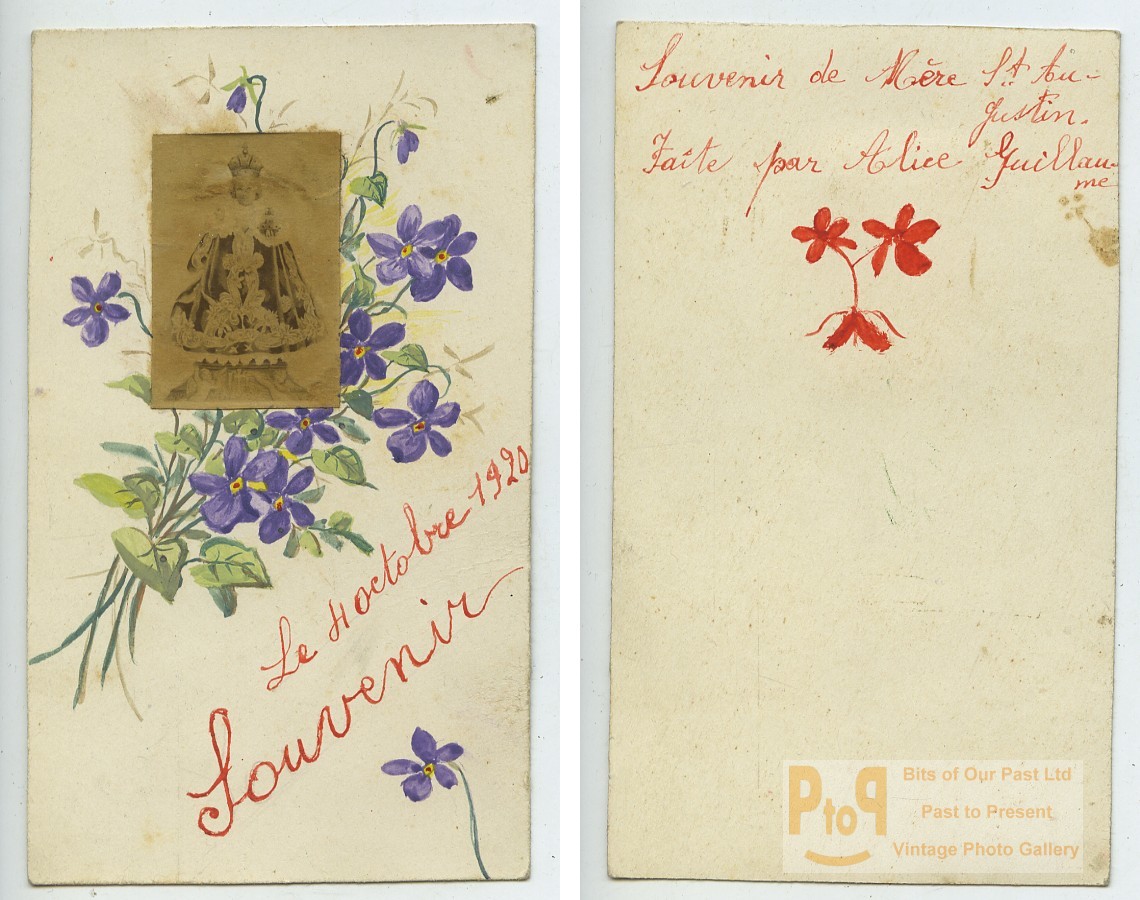 Le 4 octobre 1920
Souvenir
Souvenir de Mère St Au-
gustin.
Faite par Alice Guillau-
me
PtoP
Bits of Our Past Ltd
Past to Present
Vintage Photo Gallery